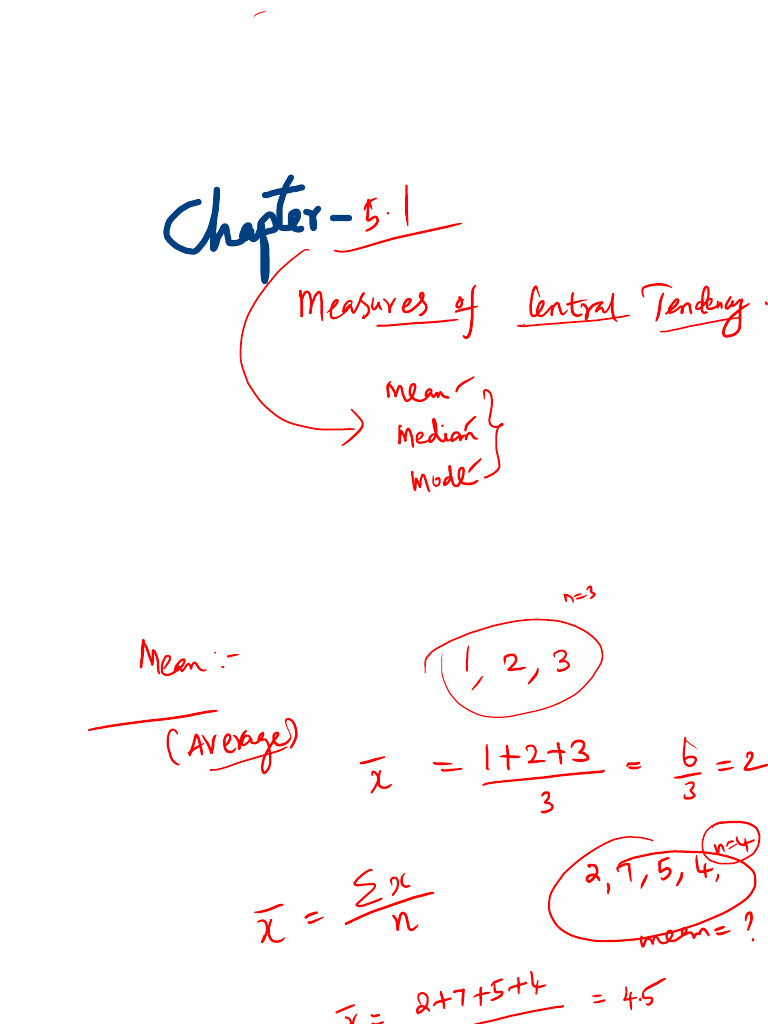 Chapter - 5.1
Measures of Central Tendency.
Mean
Median
Mode
n=3
Mean :-
1, 2, 3
(Average)
x̄ = 1+2+3 / 3 = 6/3 = 2
n=4
2, 7, 5, 4,
x̄ = Σx / n
mean = ?
x̄ = 2+7+5+4 = 4.5